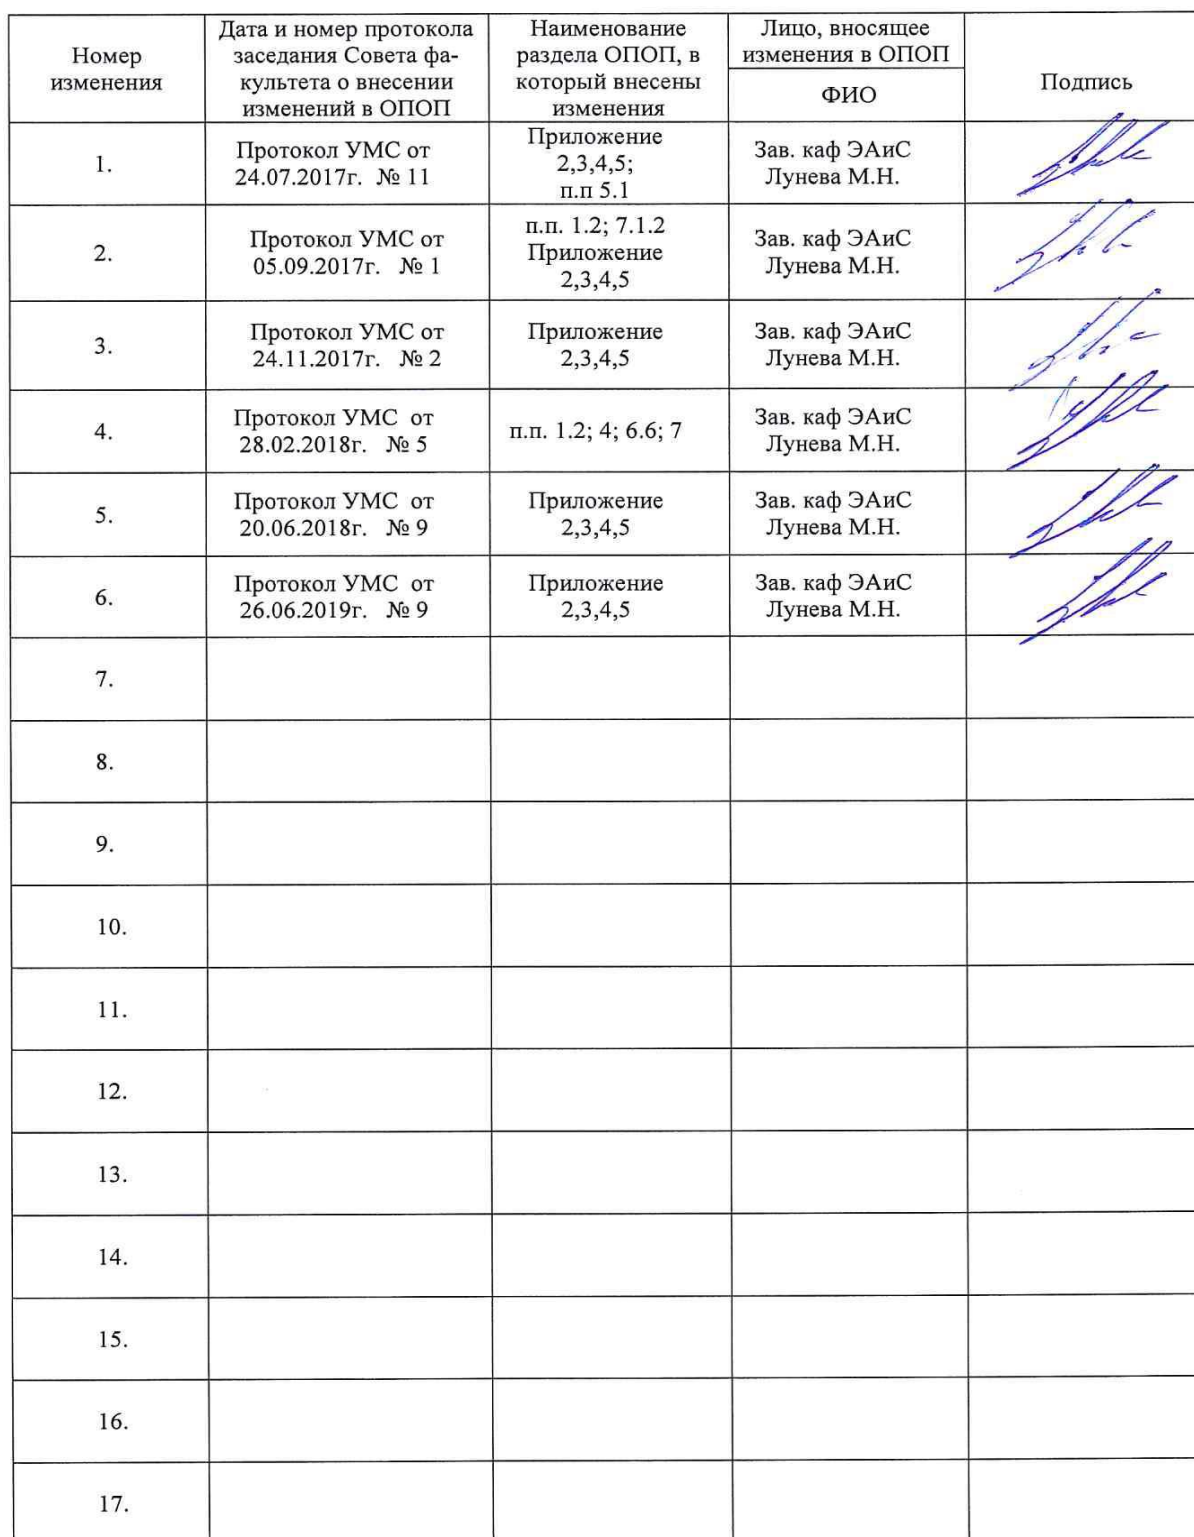 Номер
изменения
Дата и номер протокола
заседания Совета фа-
культета о внесении
изменений в ОПОП
Наименование
раздела ОПОП, в
который внесены
изменения
Лицо, вносящее
изменения в ОПОП
ФИО
Подпись
1.
Протокол УМС от
24.07.2017г. № 11
Приложение
2,3,4,5;
п.п 5.1
Зав. каф ЭАиС
Лунева М.Н.
2.
Протокол УМС от
05.09.2017г. № 1
п.п. 1.2; 7.1.2
Приложение
2,3,4,5
Зав. каф ЭАиС
Лунева М.Н.
3.
Протокол УМС от
24.11.2017г. № 2
Приложение
2,3,4,5
Зав. каф ЭАиС
Лунева М.Н.
4.
Протокол УМС от
28.02.2018г. № 5
п.п. 1.2; 4; 6.6; 7
Зав. каф ЭАиС
Лунева М.Н.
5.
Протокол УМС от
20.06.2018г. № 9
Приложение
2,3,4,5
Зав. каф ЭАиС
Лунева М.Н.
6.
Протокол УМС от
26.06.2019г. № 9
Приложение
2,3,4,5
Зав. каф ЭАиС
Лунева М.Н.
7.
8.
9.
10.
11.
12.
13.
14.
15.
16.
17.